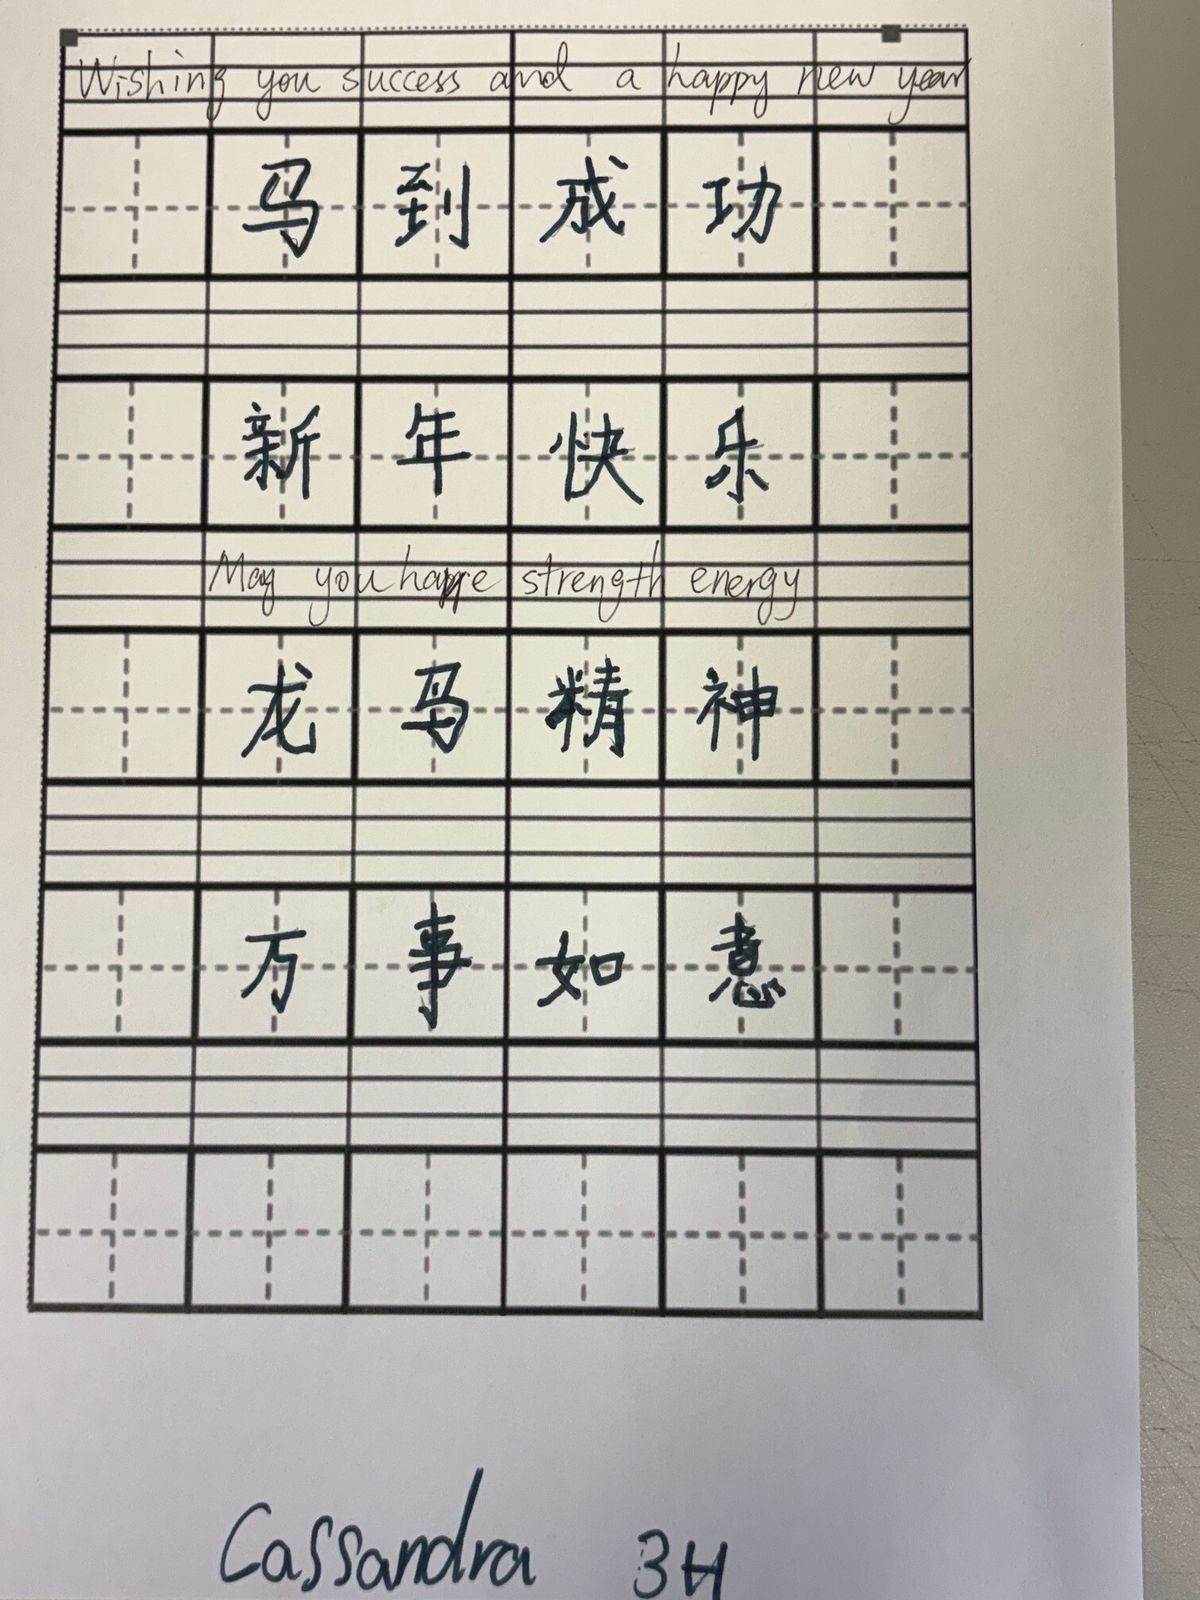 Wishing you success and a happy new year
马到成功
新年快乐
May you have strength energy
龙马精神
万事如意
Cassandra 3H